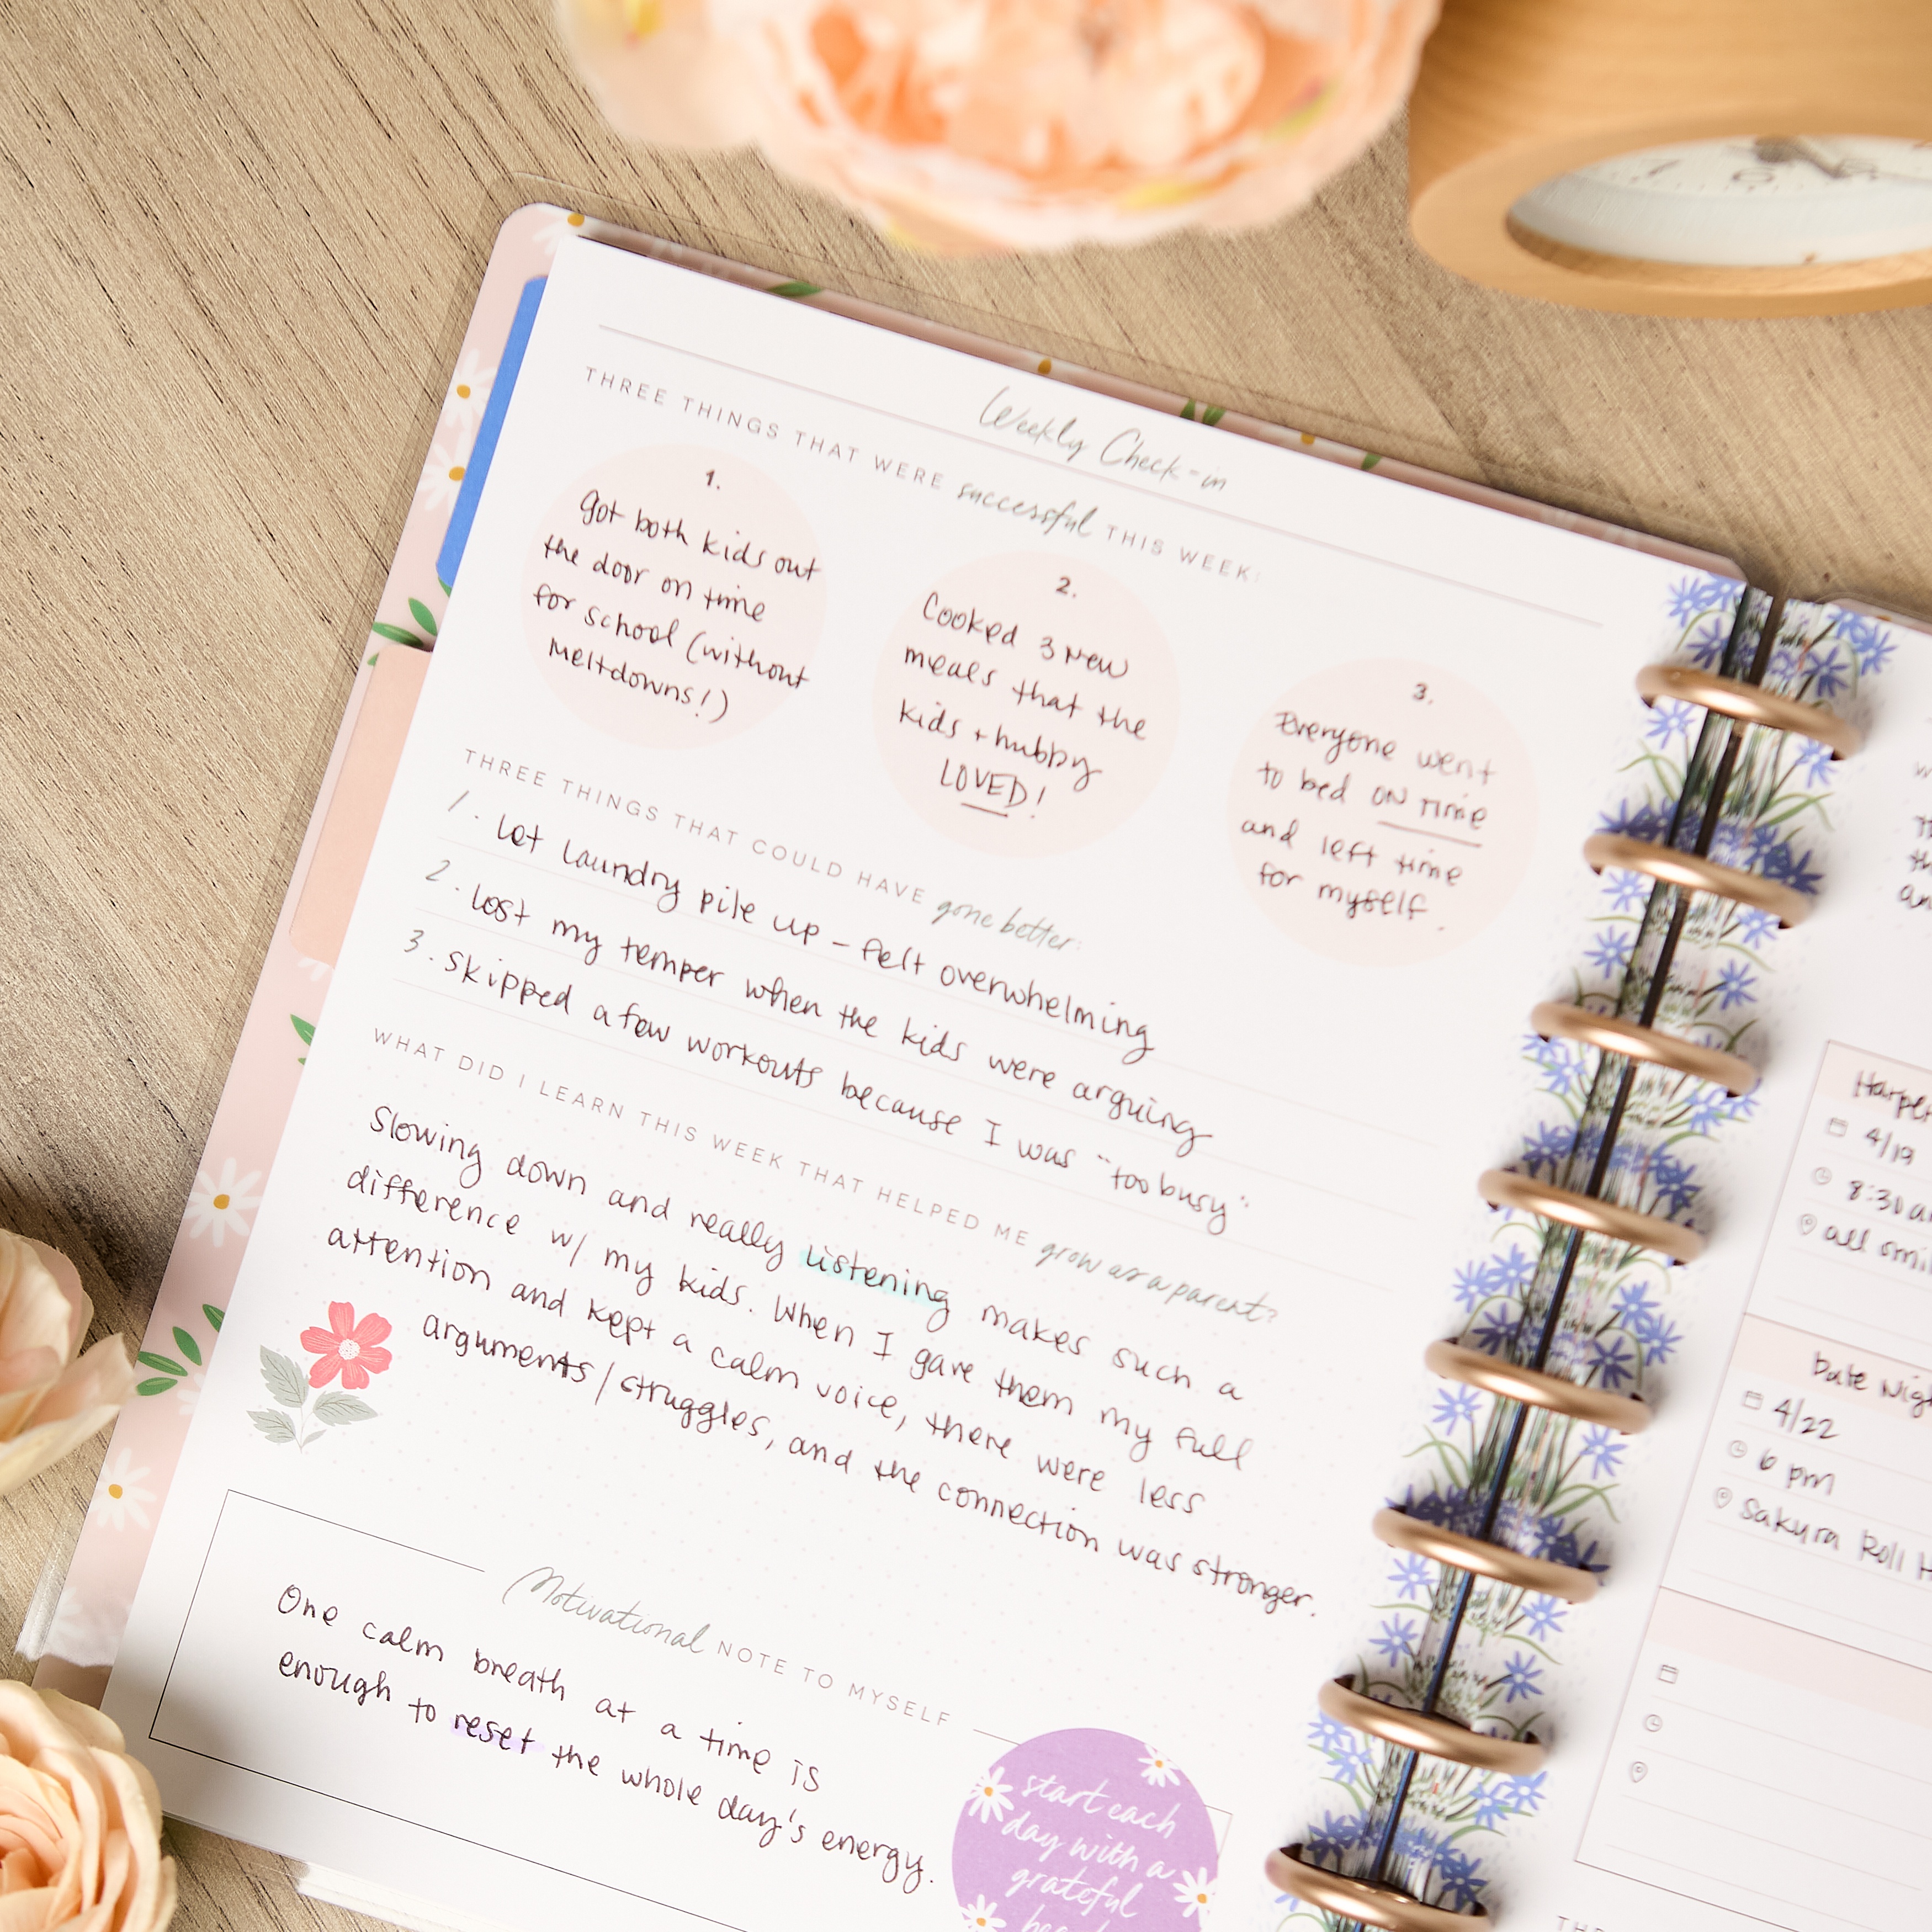 Weekly Check-in
THREE THINGS THAT WERE successful THIS WEEK:
1.
Got both kids out
the door on time
for school (without
meltdowns!)
2.
Cooked 3 new
meals that the
kids + hubby
LOVED!
3.
Everyone went
to bed ON TIME
and left time
for myself.
THREE THINGS THAT COULD HAVE gone better:
1. Let laundry pile up - felt overwhelming
2. Lost my temper when the kids were arguing
3. Skipped a few workouts because I was "too busy"
WHAT DID I LEARN THIS WEEK THAT HELPED ME grow as a parent?
Slowing down and really listening makes such a
difference w/ my kids. When I gave them my full
attention and kept a calm voice, there were less
arguments/struggles, and the connection was stronger.
Motivational NOTE TO MYSELF
One calm breath at a time is
enough to reset the whole day's energy.
start each
day with a
grateful
4/19
8:30
all
Date
4/22
6 pm
Sakura Roll